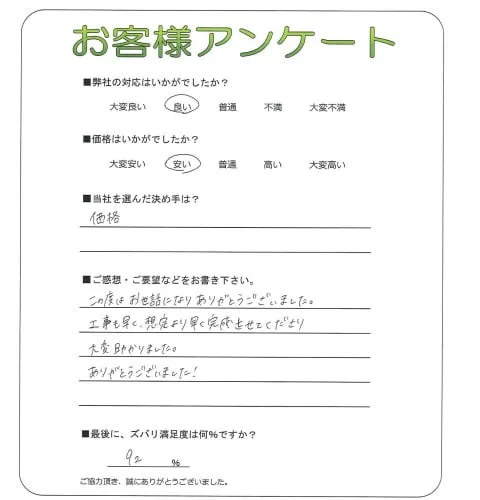 お客様アンケート
■弊社の対応はいかがでしたか？
大変良い 良い 普通 不満 大変不満
■価格はいかがでしたか？
大変安い 安い 普通 高い 大変高い
■当社を選んだ決め手は？
価格
■ご感想・ご要望などをお書き下さい。
この度はお世話になりありがとうございました。
工事も早く、想定より早く完成させてくださり
大変助かりました。
ありがとうございました！
■最後に、ズバリ満足度は何%ですか？
92 %
ご協力頂き、誠にありがとうございました。